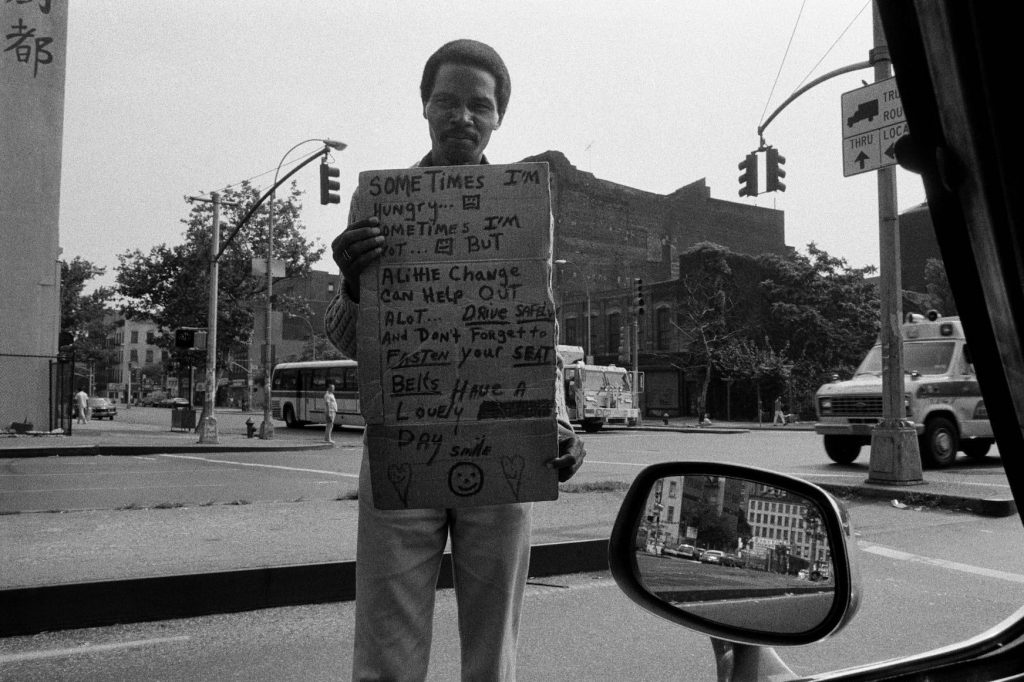 都
SOMETIMES I'M
HUNGRY...
SOMETIMES I'M
NOT... BUT
A LittlE CHANGE
CAN HELP OUT
ALOT... DRIVE SAFELY
AND DON'T FORGET to
FASTEN your SEAT
BELTS HAVE A
LOVELY
DAY smile
THRU